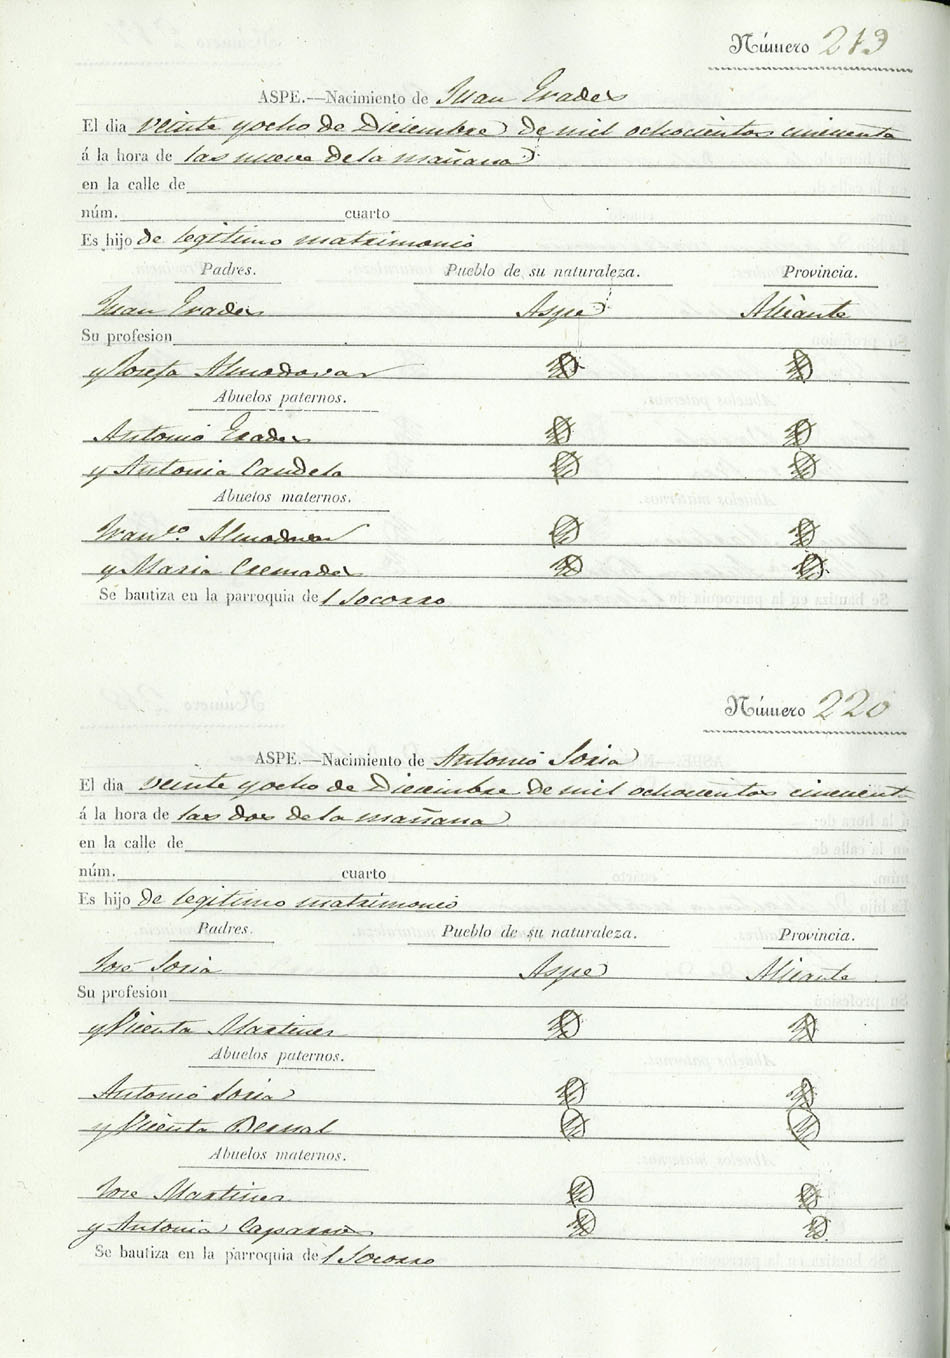 Número 219
ASPE.—Nacimiento de Juan Erades
El dia veinte y ocho de Diciembre de mil ochocientos cincuenta
á la hora de las nueve de la mañana
en la calle de
núm. cuarto
Es hijo de legitimo matrimonio
Padres. Pueblo de su naturaleza. Provincia.
Juan Erades Aspe Alicante
Su profesion
y Josefa Almodovar
Abuelos paternos.
Antonio Erades
y Antonia Candela
Abuelos maternos.
Franco. Almodovar
y Maria Cremades
Se bautiza en la parroquia del Socorro
Número 220
ASPE.—Nacimiento de Antonio Soria
El dia veinte y ocho de Diciembre de mil ochocientos cincuenta
á la hora de las dos de la mañana
en la calle de
núm. cuarto
Es hijo de legitimo matrimonio
Padres. Pueblo de su naturaleza. Provincia.
José Soria Aspe Alicante
Su profesion
y Vicenta Martines
Abuelos paternos.
Antonio Soria
y Vicenta Bernal
Abuelos maternos.
Jose Martines
y Antonia Caparros
Se bautiza en la parroquia del Socorro